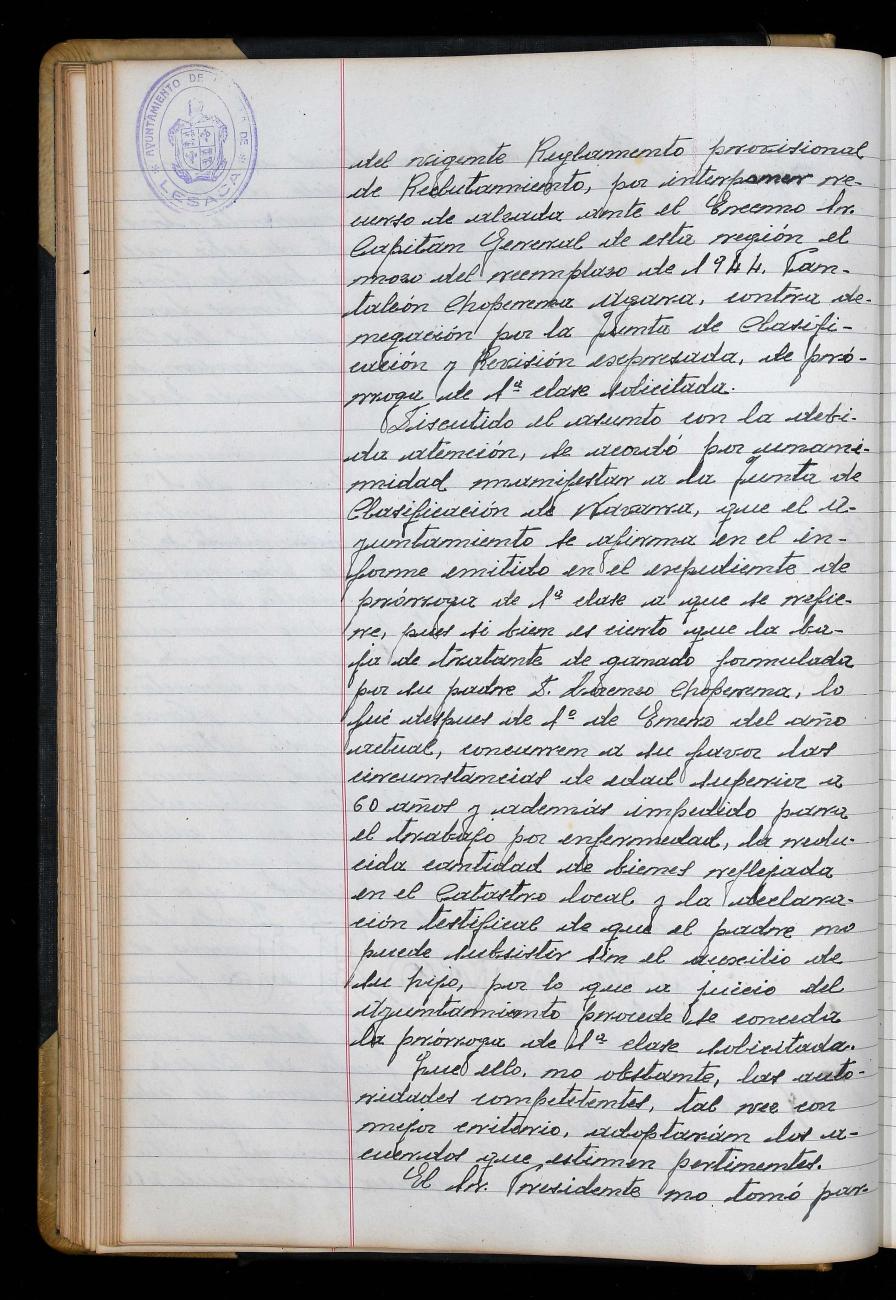 AYUNTAMIENTO DE
DE
LESACA
del vigente Reglamento provisional
de Reclutamiento, por interponer re-
curso de alzada ante el Excmo Sr.
Capitán General de esta región el
mozo del reemplazo de 1944. Pan-
taleón Choperena Ugara, contra de-
negación por la Junta de Clasifi-
cación y Revisión expresada, de pró-
rroga de 1ª clase solicitada.
Discutido el asunto con la debi-
da atención, se acordó por unani-
midad manifestar a la Junta de
Clasificación de Navarra, que el A-
yuntamiento se afirma en el in-
forme emitido en el expediente de
prórroga de 1ª clase a que se refie-
re, pues si bien es cierto que la ba-
ja de tratante de ganado formulada
por su padre D. Lorenzo Choperena, lo
fué despues de 1º de Enero del año
actual, concurren a su favor las
circunstancias de edad superior a
60 años y además impedido para
el trabajo por enfermedad, la redu-
cida cantidad de bienes reflejada
en el Catastro local y la declara-
ción testifical de que el padre no
puede subsistir sin el auxilio de
su hijo, por lo que a juicio del
Ayuntamiento procede se conceda
la prórroga de 1ª clase solicitada.
Que ello, no obstante, las auto-
ridades competetentes, tal vez con
mejor criterio, adoptarán los a-
cuerdos que estimen pertinentes.
El Sr. Presidente no tomó par-